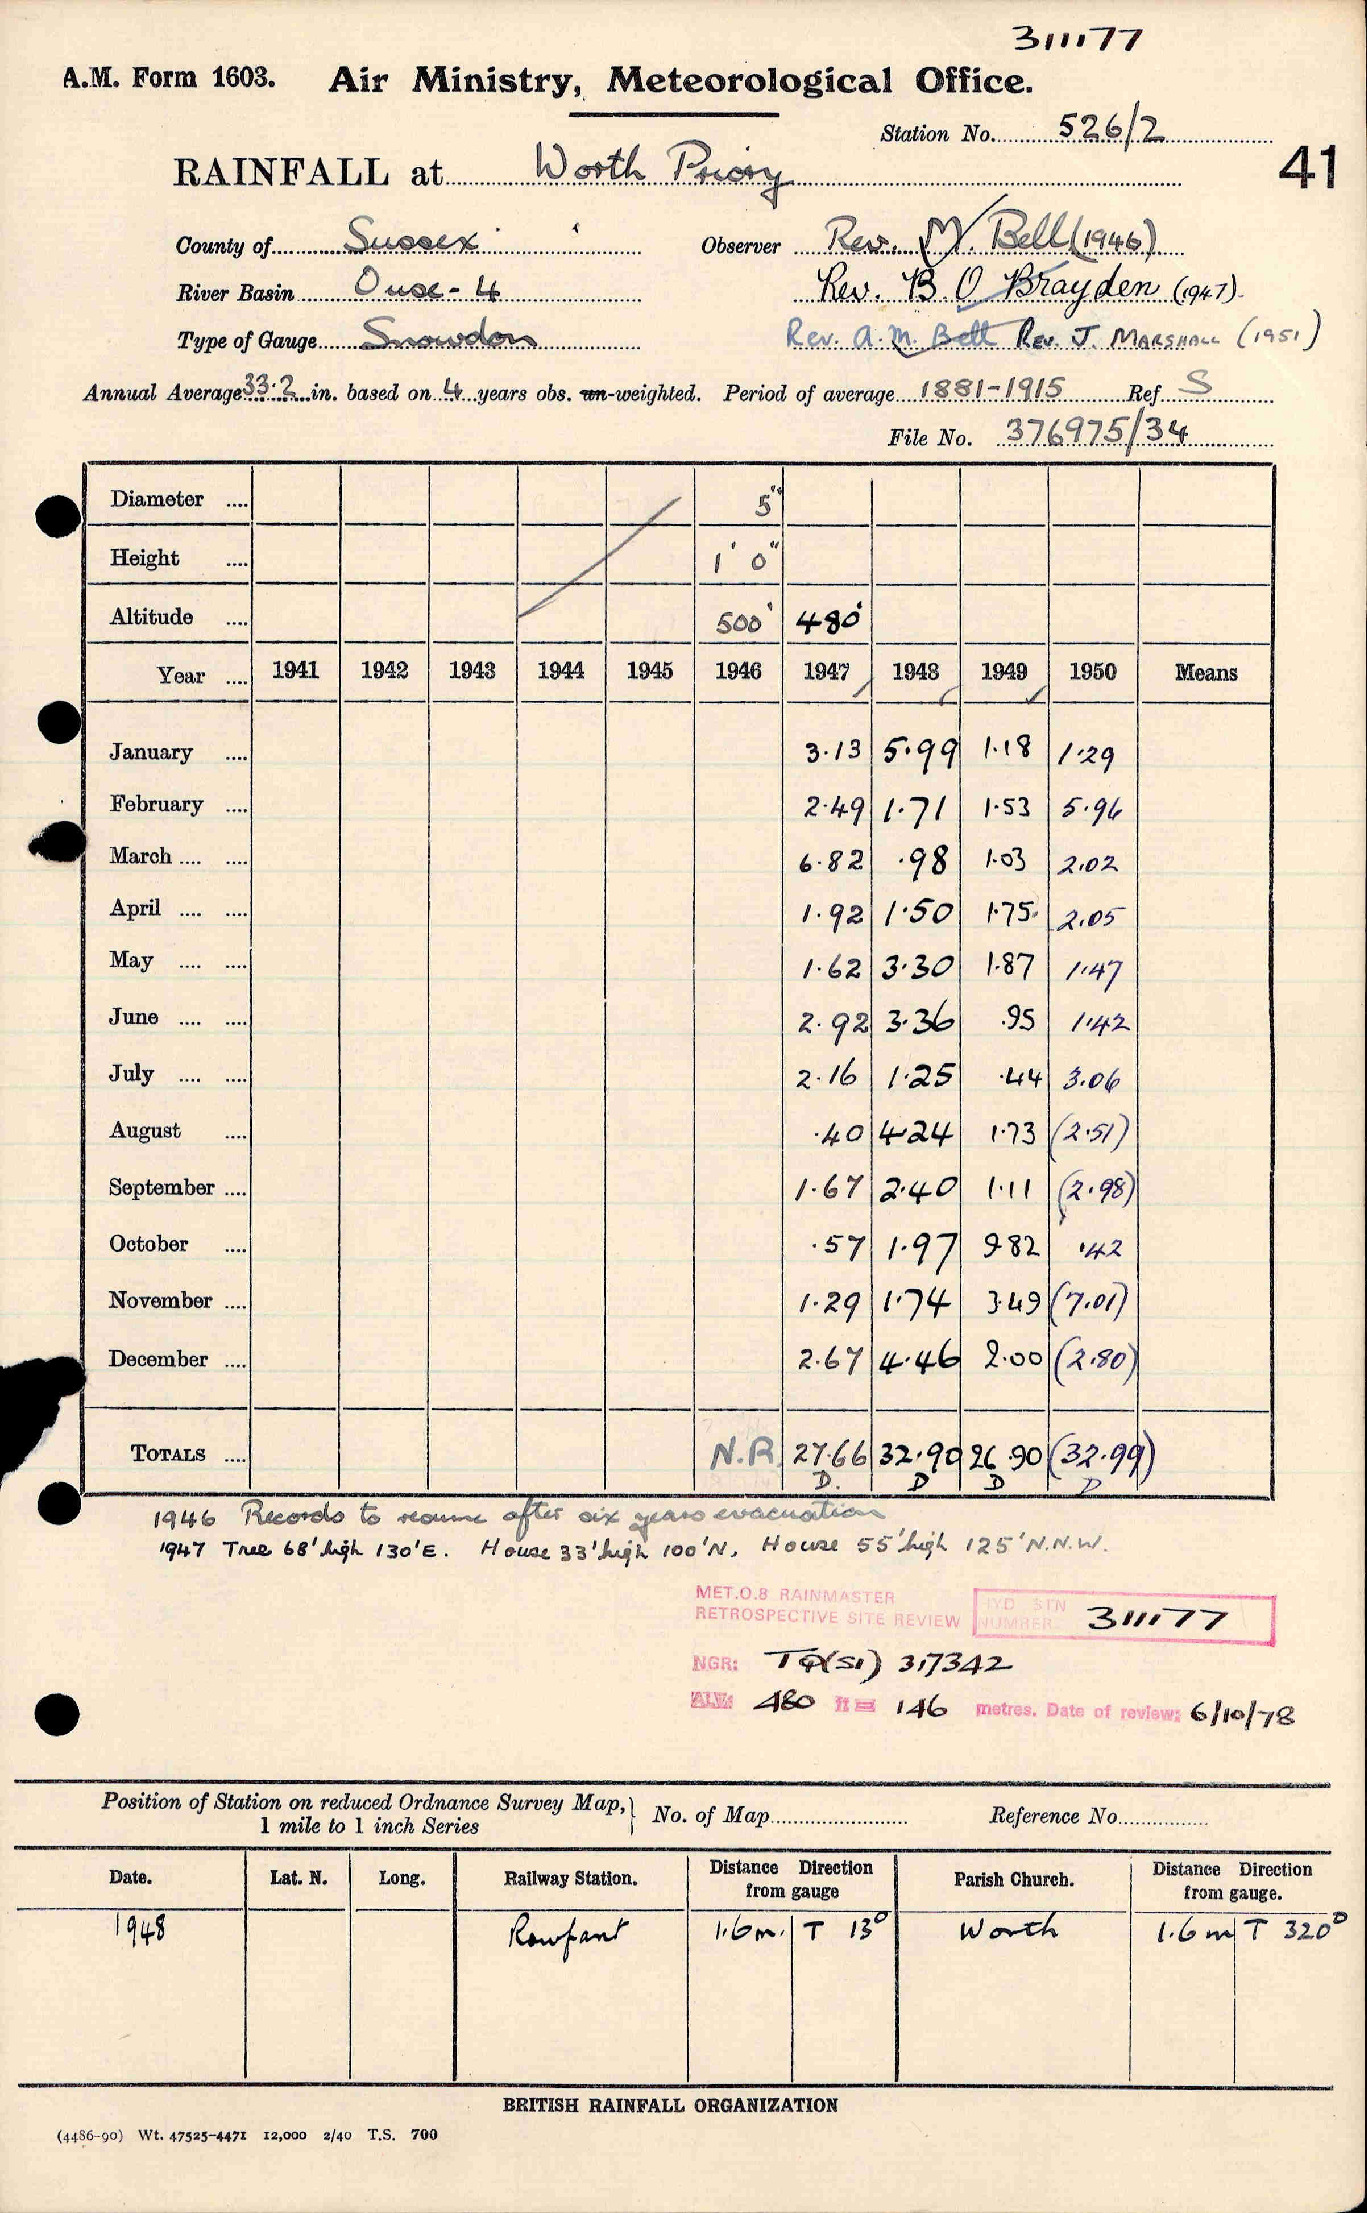 311177
A.M. Form 1603. Air Ministry, Meteorological Office.
Station No. 526/2
RAINFALL at Worth Priory
41
County of Sussex Observer Rev. M. Bell (1946)
River Basin Ouse - 4 Rev. B. O Brayden (1947)
Type of Gauge Snowdon Rev. A. M. Bell Rev. J. Marshall (1951)
Annual Average 33.2 in. based on 4 years obs. un-weighted. Period of average 1881-1915 Ref S
File No. 376975/34
Diameter .... 5"
Height .... 1' 0"
Altitude .... 500' 480'
Year .... 1941 1942 1943 1944 1945 1946 1947 1948 1949 1950 Means
January .... 3.13 5.99 1.18 1.29
February .... 2.49 1.71 1.53 5.96
March .... .... 6.82 .98 1.03 2.02
April .... .... 1.92 1.50 1.75 2.05
May .... .... 1.62 3.30 1.87 1.47
June .... .... 2.92 3.36 .95 1.42
July .... .... 2.16 1.25 .44 3.06
August .... .40 4.24 1.73 (2.51)
September .... 1.67 2.40 1.11 (2.98)
October .... .57 1.97 9.82 .42
November .... 1.29 1.74 3.49 (7.01)
December .... 2.67 4.46 2.00 (2.80)
TOTALS .... N.R. 27.66 32.90 26.90 (32.99)
D. D D D
1946 Records to resume after six years evacuation
1947 Tree 68' high 130' E. House 33' high 100' N, House 55' high 125' N.N.W.
MET.O.8 RAINMASTER
RETROSPECTIVE SITE REVIEW HYD STN NUMBER 311177
NGR: TQ(51) 317342
ALT: 480 ft = 146 metres. Date of review: 6/10/78
Position of Station on reduced Ordnance Survey Map, 1 mile to 1 inch Series No. of Map Reference No.
Date. Lat. N. Long. Railway Station. Distance Direction from gauge Parish Church. Distance Direction from gauge.
1948 Rowfant 1.6 m. T 13° Worth 1.6 m T 320°
BRITISH RAINFALL ORGANIZATION
(4486-90) Wt. 47525-4471 12,000 2/40 T.S. 700